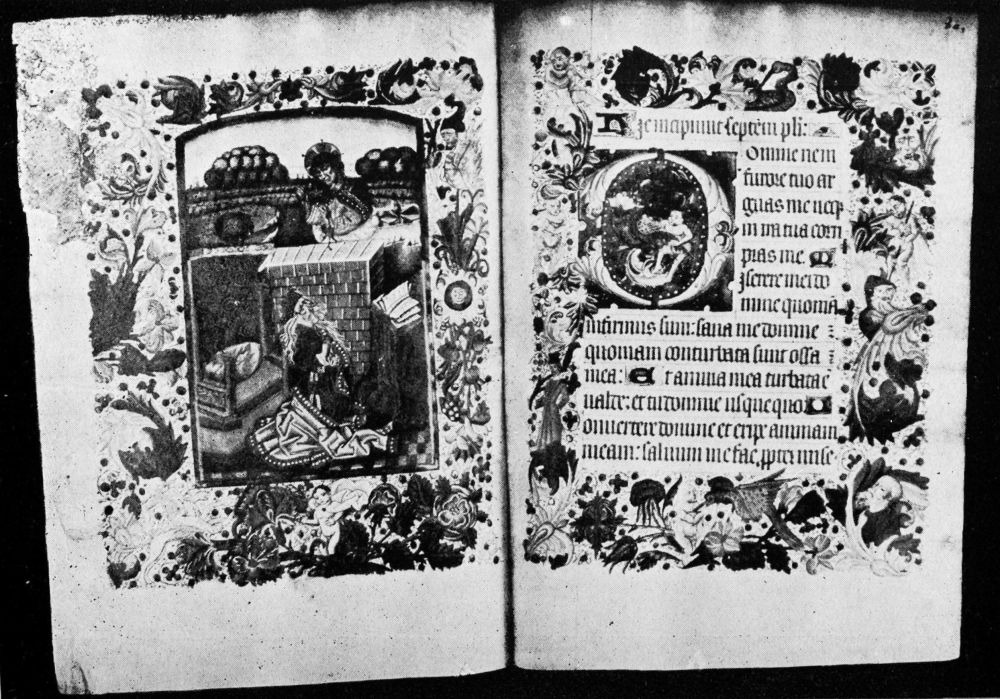 Hic incipiunt septem psl:
Domine ne in
furore tuo ar
guas me neqz
in ira tua corri
pias me. M
iserere mei do
mine quoniã
infirmus sum: sana me domine:
quoniam conturbata sunt ossa
mea: Et anima mea turbata ē
ualde: et tu domine usque quo C
onuertere domine et eripe animam
meam: saluum me fac ꝓpter mise